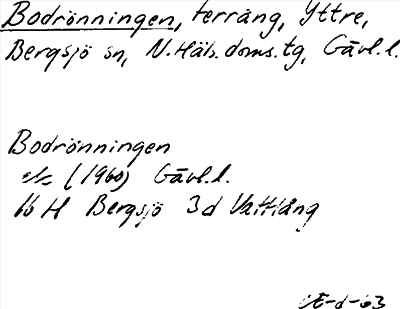 Bodrönningen, terräng, Yttre,
Bergsjö sn, N. Häls. doms.tg, Gävl.l.
Bodrönningen
e/c (1960) Gävl.l.
16 H Bergsjö 3d Vattlång
CE-d-63